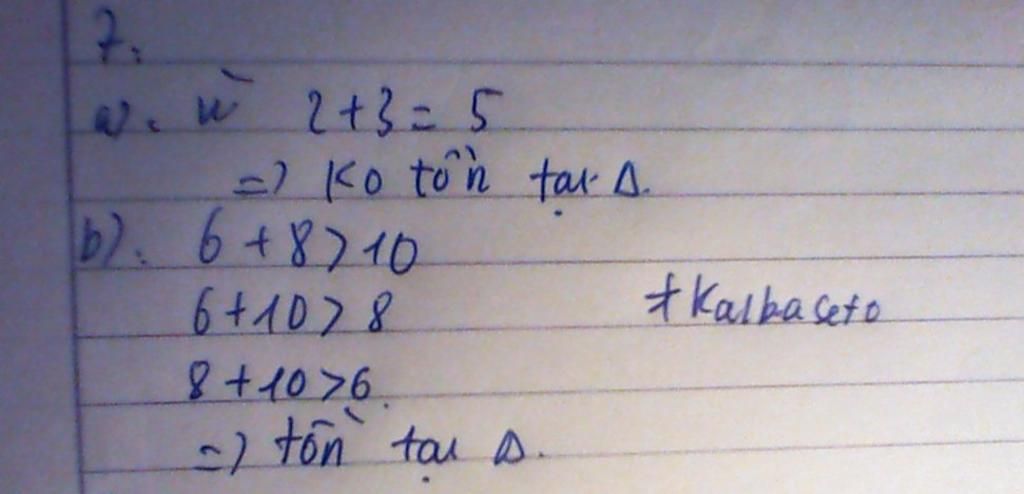 7.
a). vì 2+3 = 5
=) Ko tồn tại Δ.
b). 6+8>10
6+10>8
#Kalbaseto
8+10>6.
=) tồn tại Δ.